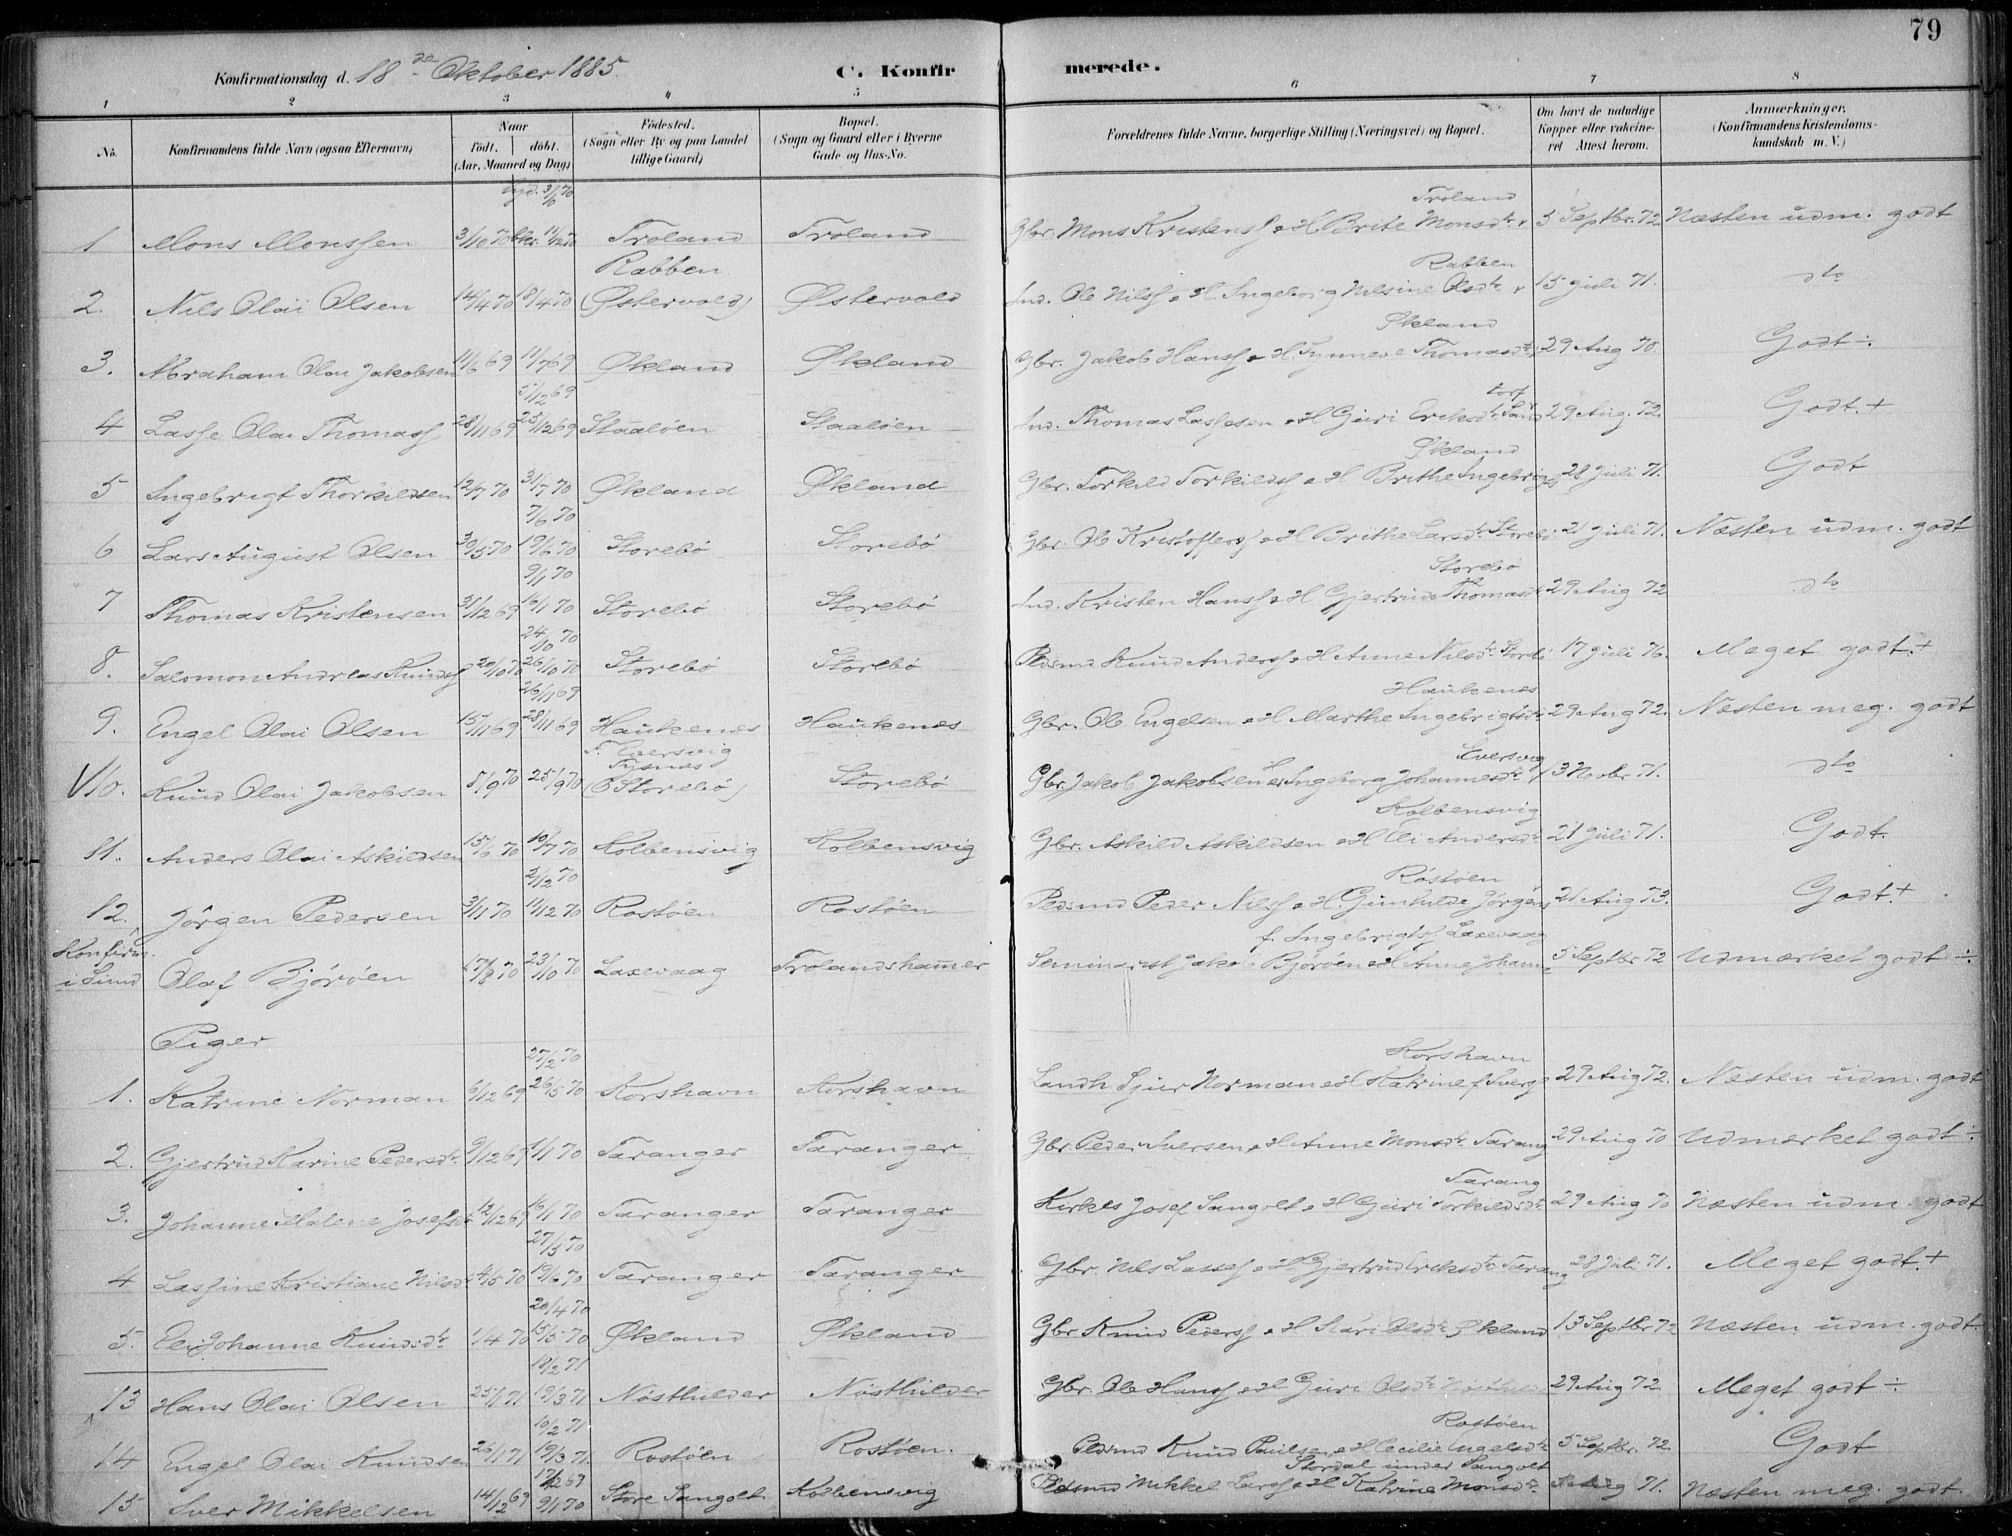 79
Konfirmationsdag d. 18de Oktober 1885.
C. Konfirmerede.
1 2 3 4 5 6 7 8
No.
Konfirmandens fulde Navn (ogsaa Efternavn)
Naar
født. døbt.
(Aar, Maaned og Dag)
Fødested.
(Sogn eller By og paa Landet tillige Gaard)
Bopæl.
(Sogn og Gaard eller i Byerne Gade og Hus-No.
Forældrenes fulde Navne, borgerlige Stilling (Næringsvei) og Bopæl.
Om havt de naturlige Kopper eller vakcineret Attest herom.
Anmærkninger.
(Konfirmandens Kristendomskundskab m. V.)
1 Mons Monssen 3/10 70 Troland Troland Gbr. Mons Kristens. & H. Brite Monsdtr. Troland 5 Septbr. 72 Næsten udm. godt
2. Nils Olai Olsen 14/4 70 18/4 70 Rabben (Østervold) Østervold Ind. Ole Nilss. & H. Ingeborg Nilsine Olsdtr. Rabben 15 juli 71. dto
3. Abraham Olai Jakobsen 11/6 69 11/7 69 Økland Økland Gbr. Jakob Hanss. & H. Synneve Thomasdtr. Økland 29 Aug 70. Godt ÷
4 Lasse Olai Thomass. 28/11 69 5/12 69 25/12 69 Staaløen Staaløen Ind. Thomas Lassesen & H. Guri Eriksdtr. 29 Aug. 72. Godt. +
5 Ingebrigt Thorkildsen 12/7 70 31/7 70 Økland Økland Gbr. Torkild Torkildss. & H. Brithe Ingebrigs Økland 28 juli 71. Godt
6 Lars August Olsen 30/5 70 7/6 70 19/6 70 Storebø Storebø Gbr. Ole Kristoffers. & H. Brithe Larsdtr. Storebø 21 juli 71. Næsten udm. godt
7 Thomas Kristensen 31/12 69 9/1 70 16/1 70 Storebø Storebø Ind. Kristen Hanss. & H. Gjertrude Thomasdtr. Storebø 29 Aug 72 dto
8. Salomon Andreas Knuds. 20/10 70 24/10 70 26/10 70 Storebø Storebø Pedsmd Knud Anderss. & H. Anne Nilsdtr. Storebø 17 juli 76. Meget godt. +
9. Engel Olai Olsen 15/11 69 26/11 69 28/11 69 Haukenes Haukenes Gbr. Ole Engelsen & H. Marthe Ingebrigtsdtr. Haukenes 29 Aug 72. Næsten meg. godt
10. Knud Olai Jakobsen 8/9 70 25/9 70 f. Eversvig Tysnes (Storebø) Storebø Gbr. Jakob Jakobsen & Ingeborg Johannesdtr. Eversvig 3 Novbr. 71. dto
11. Anders Olai Askildsen 15/6 70 10/7 70 Kolbensvig Kolbensvig Gbr. Askild Askildsen & H. Eli Andersdtr. Kolbensvig 21 juli 71. Godt.
12. Jörgen Pedersen 3/11 70 2/12 70 11/12 70 Rostøen Rostøen Pedsmd Peder Nilss. & H. Gunhilde Jørgens Rostøen 21 Aug 73. Godt. +
Konfirm. i Sund Olaf Bjørøen 17/8 70 23/10 70 Laxevaag Trolandshamer Seminarist Jakob Bjørøen & H. Anne Johanne f. Ingebrigts. Laxevaag 5 Septbr 72 Udmærket godt ÷
Piger
1. Katrine Norman 6/12 69 27/2 70 26/5 70 Korshavn Korshavn Landh. Sjur Norman & H. Katrine f. Korshavn 29 Aug 72. Næsten udm. godt
2. Gjertrud Karine Pedersdtr. 9/12 69 1/1 70 Taranger Taranger Gbr. Peder Iversen & H. Anne Monsdtr. Tarang 29 Aug 70 Udmærket godt ÷
3. Johanne Malene Josefsdtr. 12/12 69 16/1 70 Taranger Taranger Kirkes. Josef Sangolt & H. Guri Torkildsdtr. Tarang 29 Aug 70 Næsten udm. godt
4 Lassine Kristiane Nilsdtr. 4/5 70 27/5 70 19/6 70 Taranger Taranger Gbr. Nils Lasses. & H. Gjertrud Eriksdtr. Tarang 28 Juli 71. Meget godt. +
5. Eli Johanne Knudsdtr. 1/4 70 20/4 70 15/5 70 Økland Økland Gbr. Knud Peders. & H. Siri Olsdtr. Økland 13 Septbr 72 Næsten udm. godt.
13 Hans Olai Olsen 25/1 71 18/2 71 19/3 71 Nøsthilder Nøsthilder Gbr. Ole Hanss. & H. Guri Olsdtr. Nøsthilder 29 Aug 72 Meget godt ÷
14 Engel Olai Knudsen 26/1 71 10/2 71 19/3 71. Rostøen Rostøen. Pedsmd Knud Paulsen & H. Cecilie Engelsdtr. Rostøen 5 Septbr. 72 Godt
15 Iver Mikkelsen 14/12 69 17/12 69 9/1 70 Store Sangolt Kolbensvig Pedsmd Mikkel Larss. & H. Katrine Monsdtr. Stordal under Sangolt 71. Næsten meg. godt.